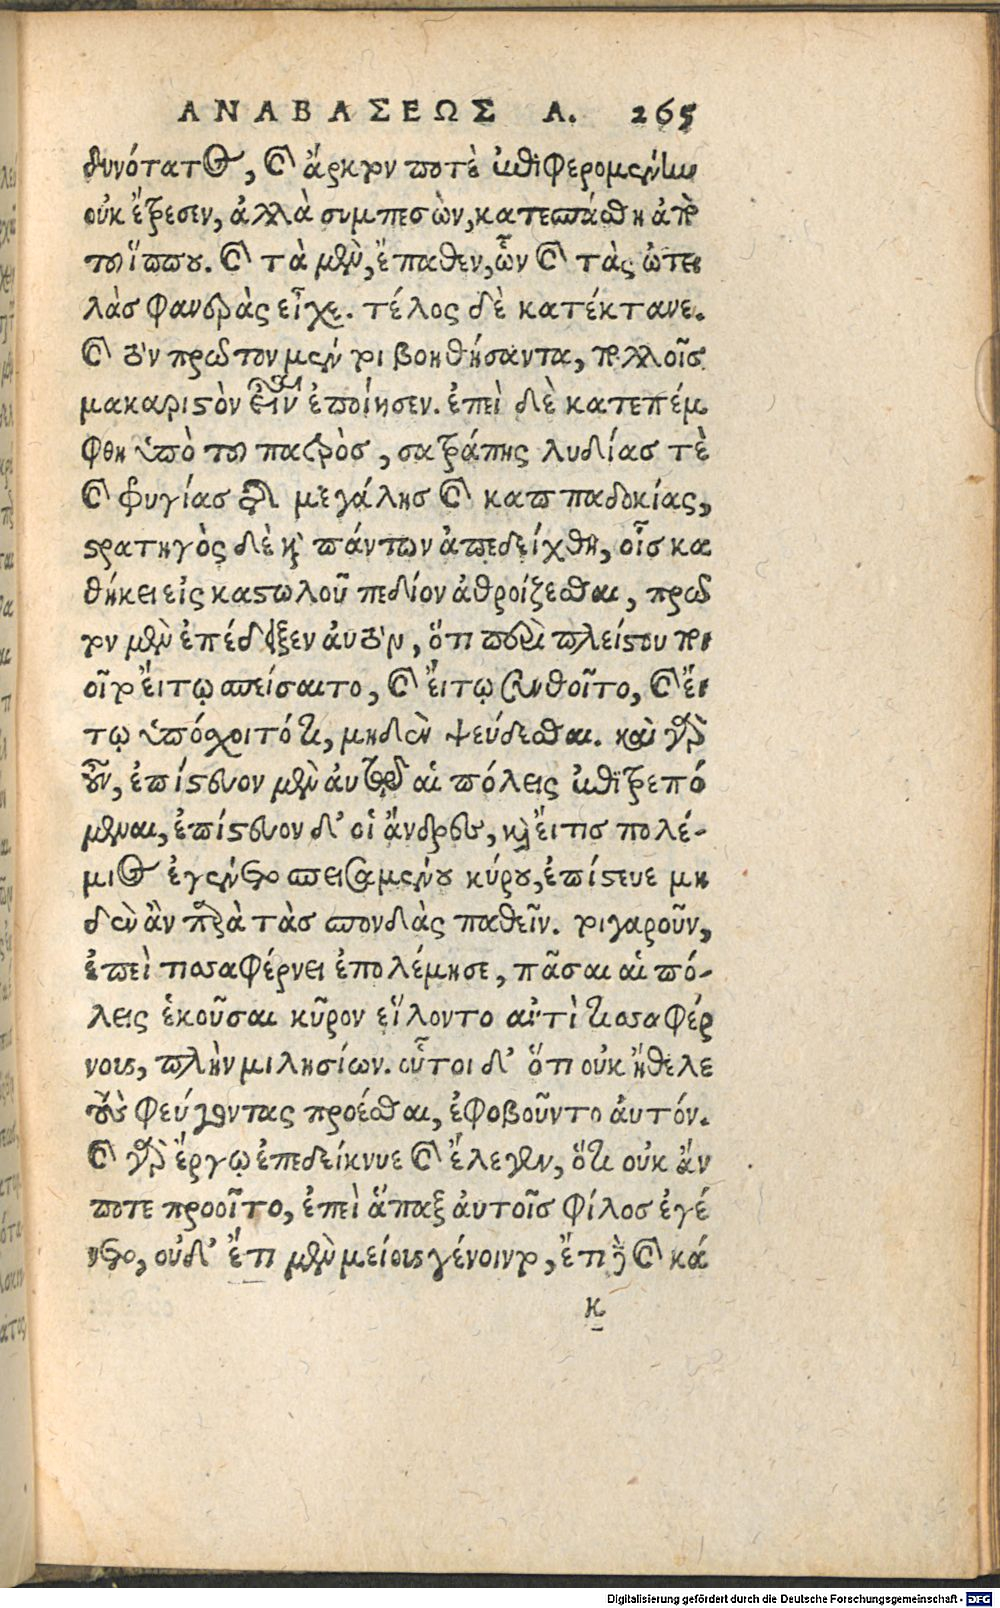 ΑΝΑΒΑΣΕΩΣ Α. 265
δυνότατος, καὶ ἄρκτον ποτὲ ἐπιφερομένην
οὐκ ἔτρεσεν, ἀλλὰ συμπεσὼν, κατεσπάσθη ἀπὸ
τοῦ ἵππου. καὶ τὰ μὲν, ἔπαθεν, ὧν καὶ τὰς ὠτει
λὰς φανερὰς εἶχε. τέλος δὲ κατέκτανε.
καὶ τὸν πρῶτον μέν τοι βοηθήσαντα, πολλοῖς
μακαριστὸν εἶναι ἐποίησεν. ἐπεὶ δὲ κατεπέμ
φθη ὑπὸ τοῦ πατρὸς, σατράπης λυδίας τὲ
καὶ φρυγίας τῆς μεγάλης καὶ καππαδοκίας,
στρατηγὸς δὲ καὶ πάντων ἀπεδείχθη, οἷς κα
θήκει εἰς καστωλοῦ πεδίον ἀθροίζεσθαι, πρῶ
τον μὲν ἐπέδειξεν αὐτὸν, ὅτι περὶ πλείστου ποι
οῖτο εἴ τῳ σπείσαιτο, καὶ εἴ τῳ συνθοῖτο, καὶ εἴ
τῳ ὑπόσχοιτό τι, μηδὲν ψεύδεσθαι. καὶ γὰρ
οὖν, ἐπίστευον μὲν αὐτῷ αἱ πόλεις ἐπιτρεπό
μεναι, ἐπίστευον δ' οἱ ἄνδρες, καὶ εἴ τις πολέ-
μιος ἐγένετο σπεισαμένου κύρου, ἐπίστευε μη
δὲν ἂν παρὰ τὰς σπονδὰς παθεῖν. τοιγαροῦν,
ἐπεὶ τισσαφέρνει ἐπολέμησε, πᾶσαι αἱ πό-
λεις ἑκοῦσαι κῦρον εἵλοντο ἀντὶ τισσαφέρ
νους, πλὴν μιλησίων. οὗτοι δ' ὅτι οὐκ ἤθελε
τοὺς φεύγοντας προέσθαι, ἐφοβοῦντο αὐτόν.
καὶ γὰρ ἔργῳ ἐπεδείκνυε καὶ ἔλεγεν, ὅτι οὐκ ἄν
ποτε προοῖτο, ἐπεὶ ἅπαξ αὐτοῖς φίλος ἐγέ
νετο, οὐδ' ἔτι μὲν μείους γένοιντο, ἔτι δὲ καὶ κά
κ
Digitalisierung gefördert durch die Deutsche Forschungsgemeinschaft - DFG